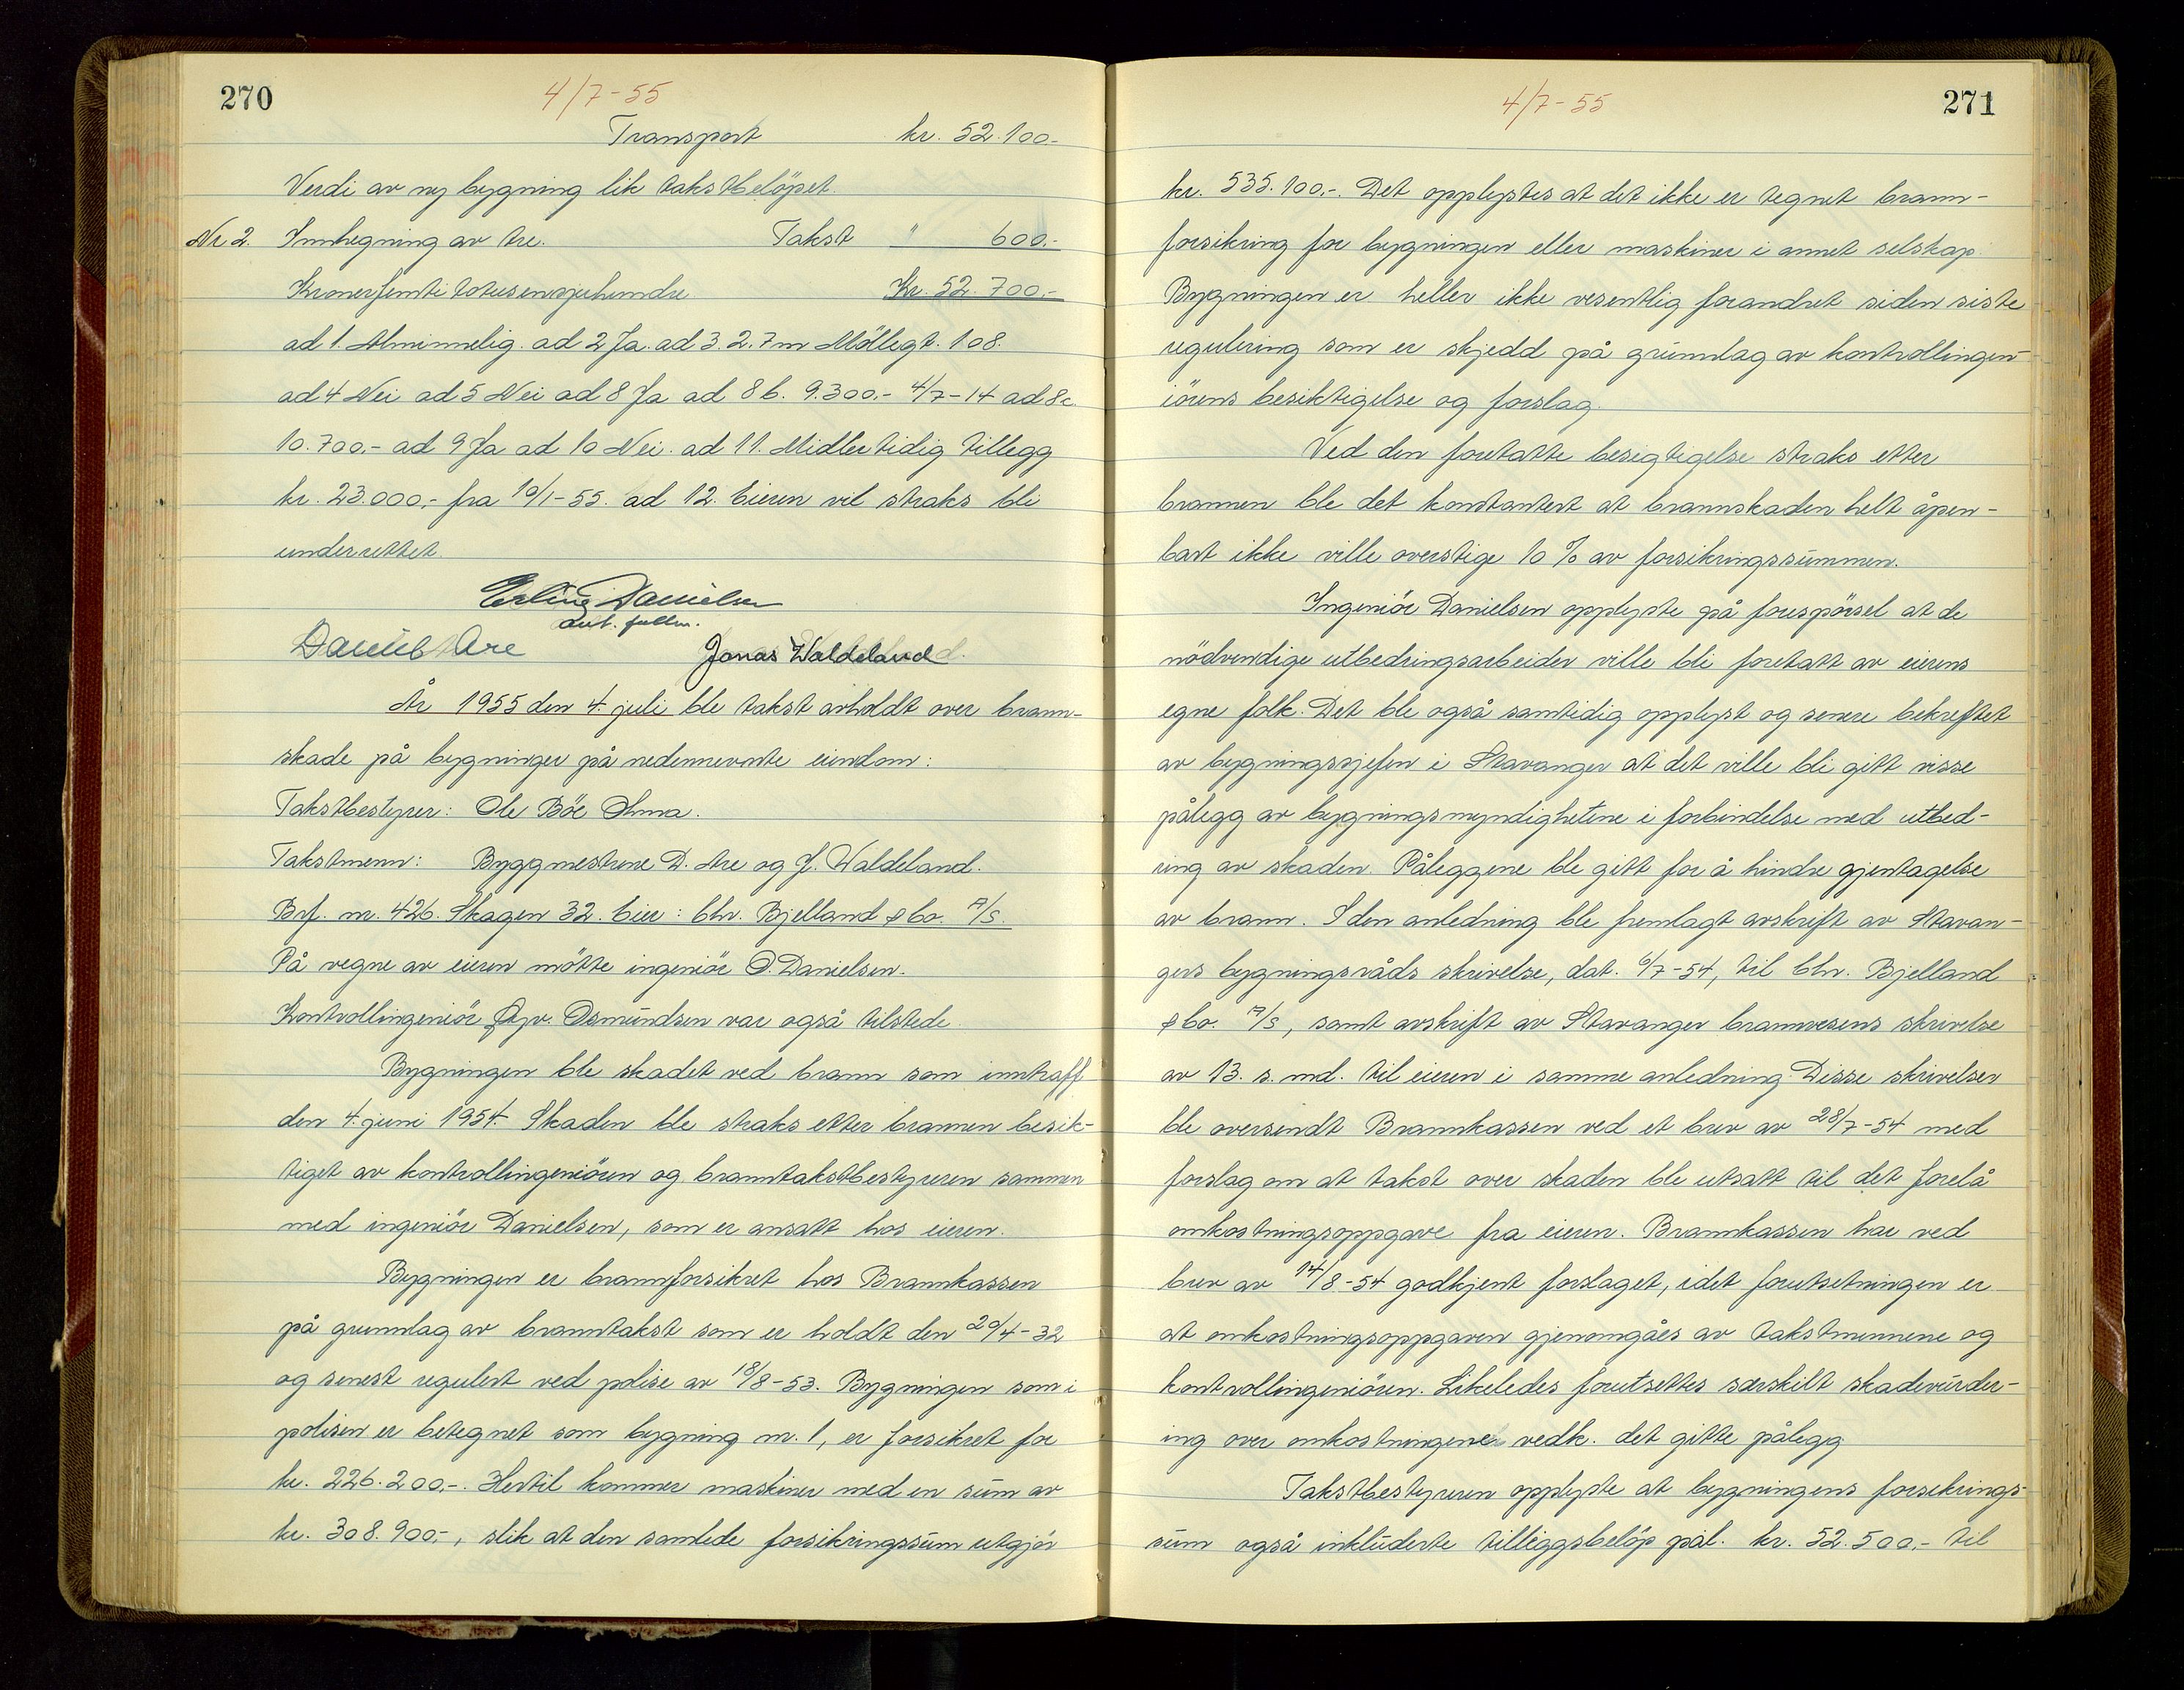 270
4/7-55
Transport kr. 52.100.-
Verdi av ny bygning lik takstbelöpet.
Nr 2. Innhegning av tre. Takst " 600.-
Kronerfemtitotusensjuhundre Kr. 52.700.-
ad 1. Alminnelig. ad 2 Ja. ad 3. 2.7 m Möllegt. 108.
ad 4 Nei ad 5 Nei ad 8 Ja ad 8 b. 9.300.- 4/7-14 ad 8c.
10.700.- ad 9 Ja ad 10 Nei. ad 11. Midlertidig tillegg
kr. 23.000,- fra 10/1-55. ad 12. Eieren vil straks bli
underrettet.
Erling Danielsen
aut. fullm.
Daniel Are Jonas Waldeland
År 1955 den 4. juli ble takst avholdt over brann-
skade på bygninger på nedennevnte eiendom:
Takstbestyrer: Ole Böe Ohma.
Takstmenn: Byggmestrene D. Are og J. Waldeland.
Brf. nr. 426. Skagen 32. Eier: Chr. Bjelland & Co. A/S.
På vegne av eieren mötte ingeniör O. Danielsen.
Kontrollingeniör Osmundsen var også tilstede.
Bygningen ble skadet ved brann som inntraff
den 4. juni 1954. Skaden ble straks etter brannen besik-
tiget av kontrollingeniören og branntakstbestyreren sammen
med ingeniör Danielsen, som er ansatt hos eieren.
Bygningen er brannforsikret hos Brannkassen
på grunnlag av branntakst som er holdt den 20/4-32
og senest regulert ved polise av 18/8-53. Bygningen som i
polisen er betegnet som bygning nr. 1, er forsikret for
kr. 226.200,-. Hertil kommer maskiner med en sum av
kr. 308.900,-, slik at den samlede forsikringssum utgjör
271
4/7-55
kr. 535.100.-. Det opplystes at det ikke er tegnet brann-
forsikring for bygningen eller maskiner i annet selskap.
Bygningen er heller ikke vesentlig forandret siden siste
regulering som er skjedd på grunnlag av kontrollingen-
iörens besiktigelse og forslag.
Ved den foretatte besigtigelse straks etter
brannen ble det konstantert at brannskaden helt åpen-
bart ikke ville overstige 10 % av forsikringssummen.
Ingeniör Danielsen opplyste på forespörsel at de
nödvendige utbedringsarbeider ville bli foretatt av eierens
egne folk. Det ble også samtidig opplyst og senere bekreftet
av bygningssjefen i Stavanger at det ville bli gitt visse
pålegg av bygningsmyndighetene i forbindelse med utbed-
ring av skaden. Påleggene ble gitt for å hindre gjentagelse
av brann. I den anledning ble fremlagt avskrift av Stavan-
gers bygningsråds skrivelse, dat. 6/7-54, til Chr. Bjelland
& Co. A/S, samt avskrift av Stavanger brannvesens skrivelse
av 13. s. md. til eieren i samme anledning. Disse skrivelser
ble oversendt Brannkassen ved et brev av 28/7-54 med
forslag om at takst over skaden ble utsatt til det forelå
omkostningsoppgave fra eieren. Brannkassen har ved
brev av 14/8-54 godkjent forslaget, idet forutsetningen er
at omkostningsoppgaven gjenomgåes av takstmennene og
kontrollingeniören. Likeledes forutsettes særskilt skadevurder-
ing over omkostningene vedk. det gitte pålegg.
Takstbestyreren opplyste at bygningens forsikrings-
sum også inkluderte tilleggsbelöp pål. kr. 52.500.- til